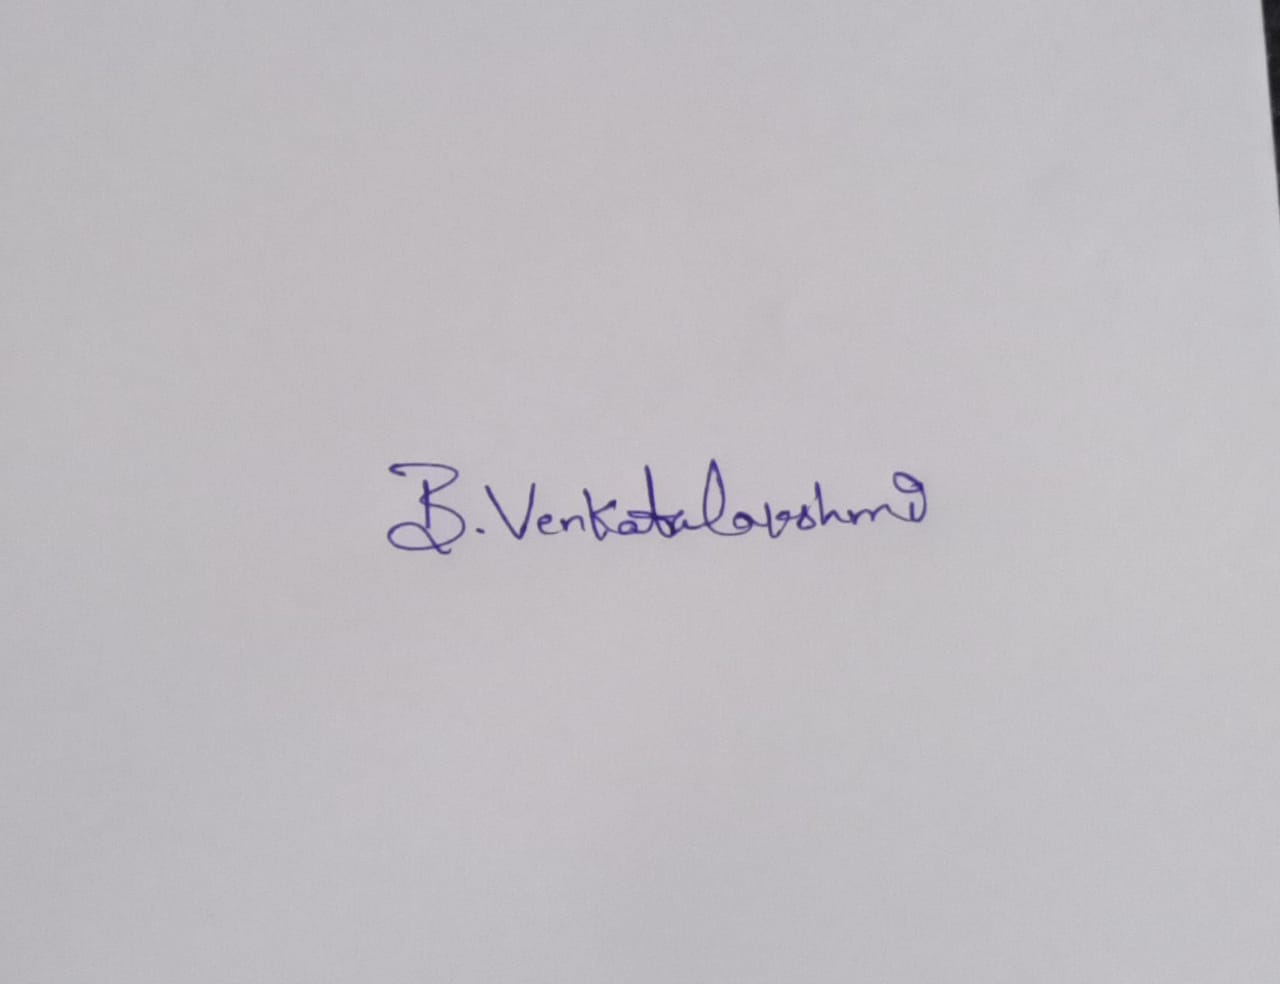 B. Venkatalakshmi